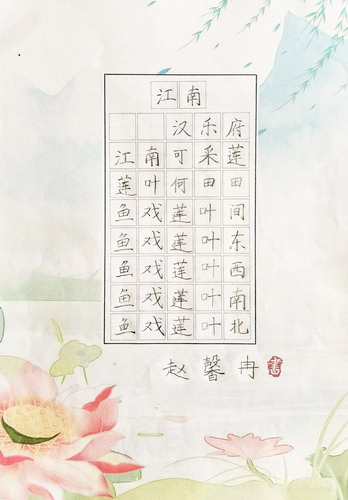 江南
汉乐府
江南可采莲
莲叶何田田
鱼戏莲叶间
鱼戏莲叶东
鱼戏莲叶西
鱼戏莲叶南
鱼戏莲叶北
赵馨冉 書